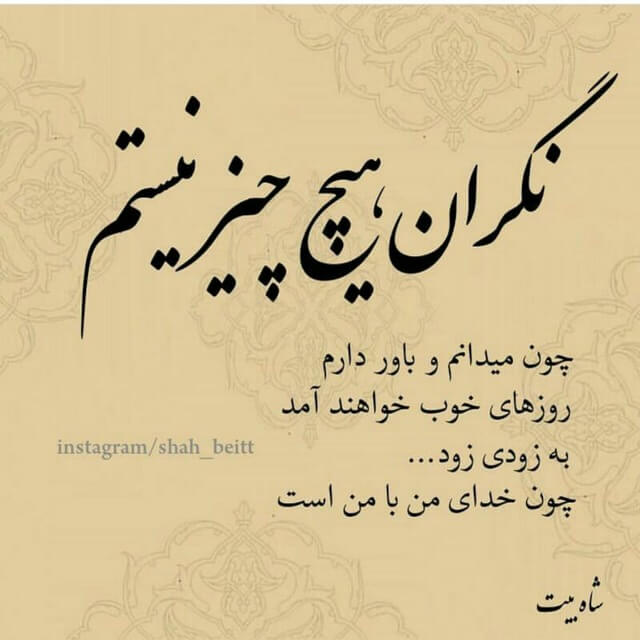 نگران هیچ چیز نیستم
چون میدانم و باور دارم
روزهای خوب خواهند آمد
به زودی زود...
instagram/shah_beitt
چون خدای من با من است
شاه بیت